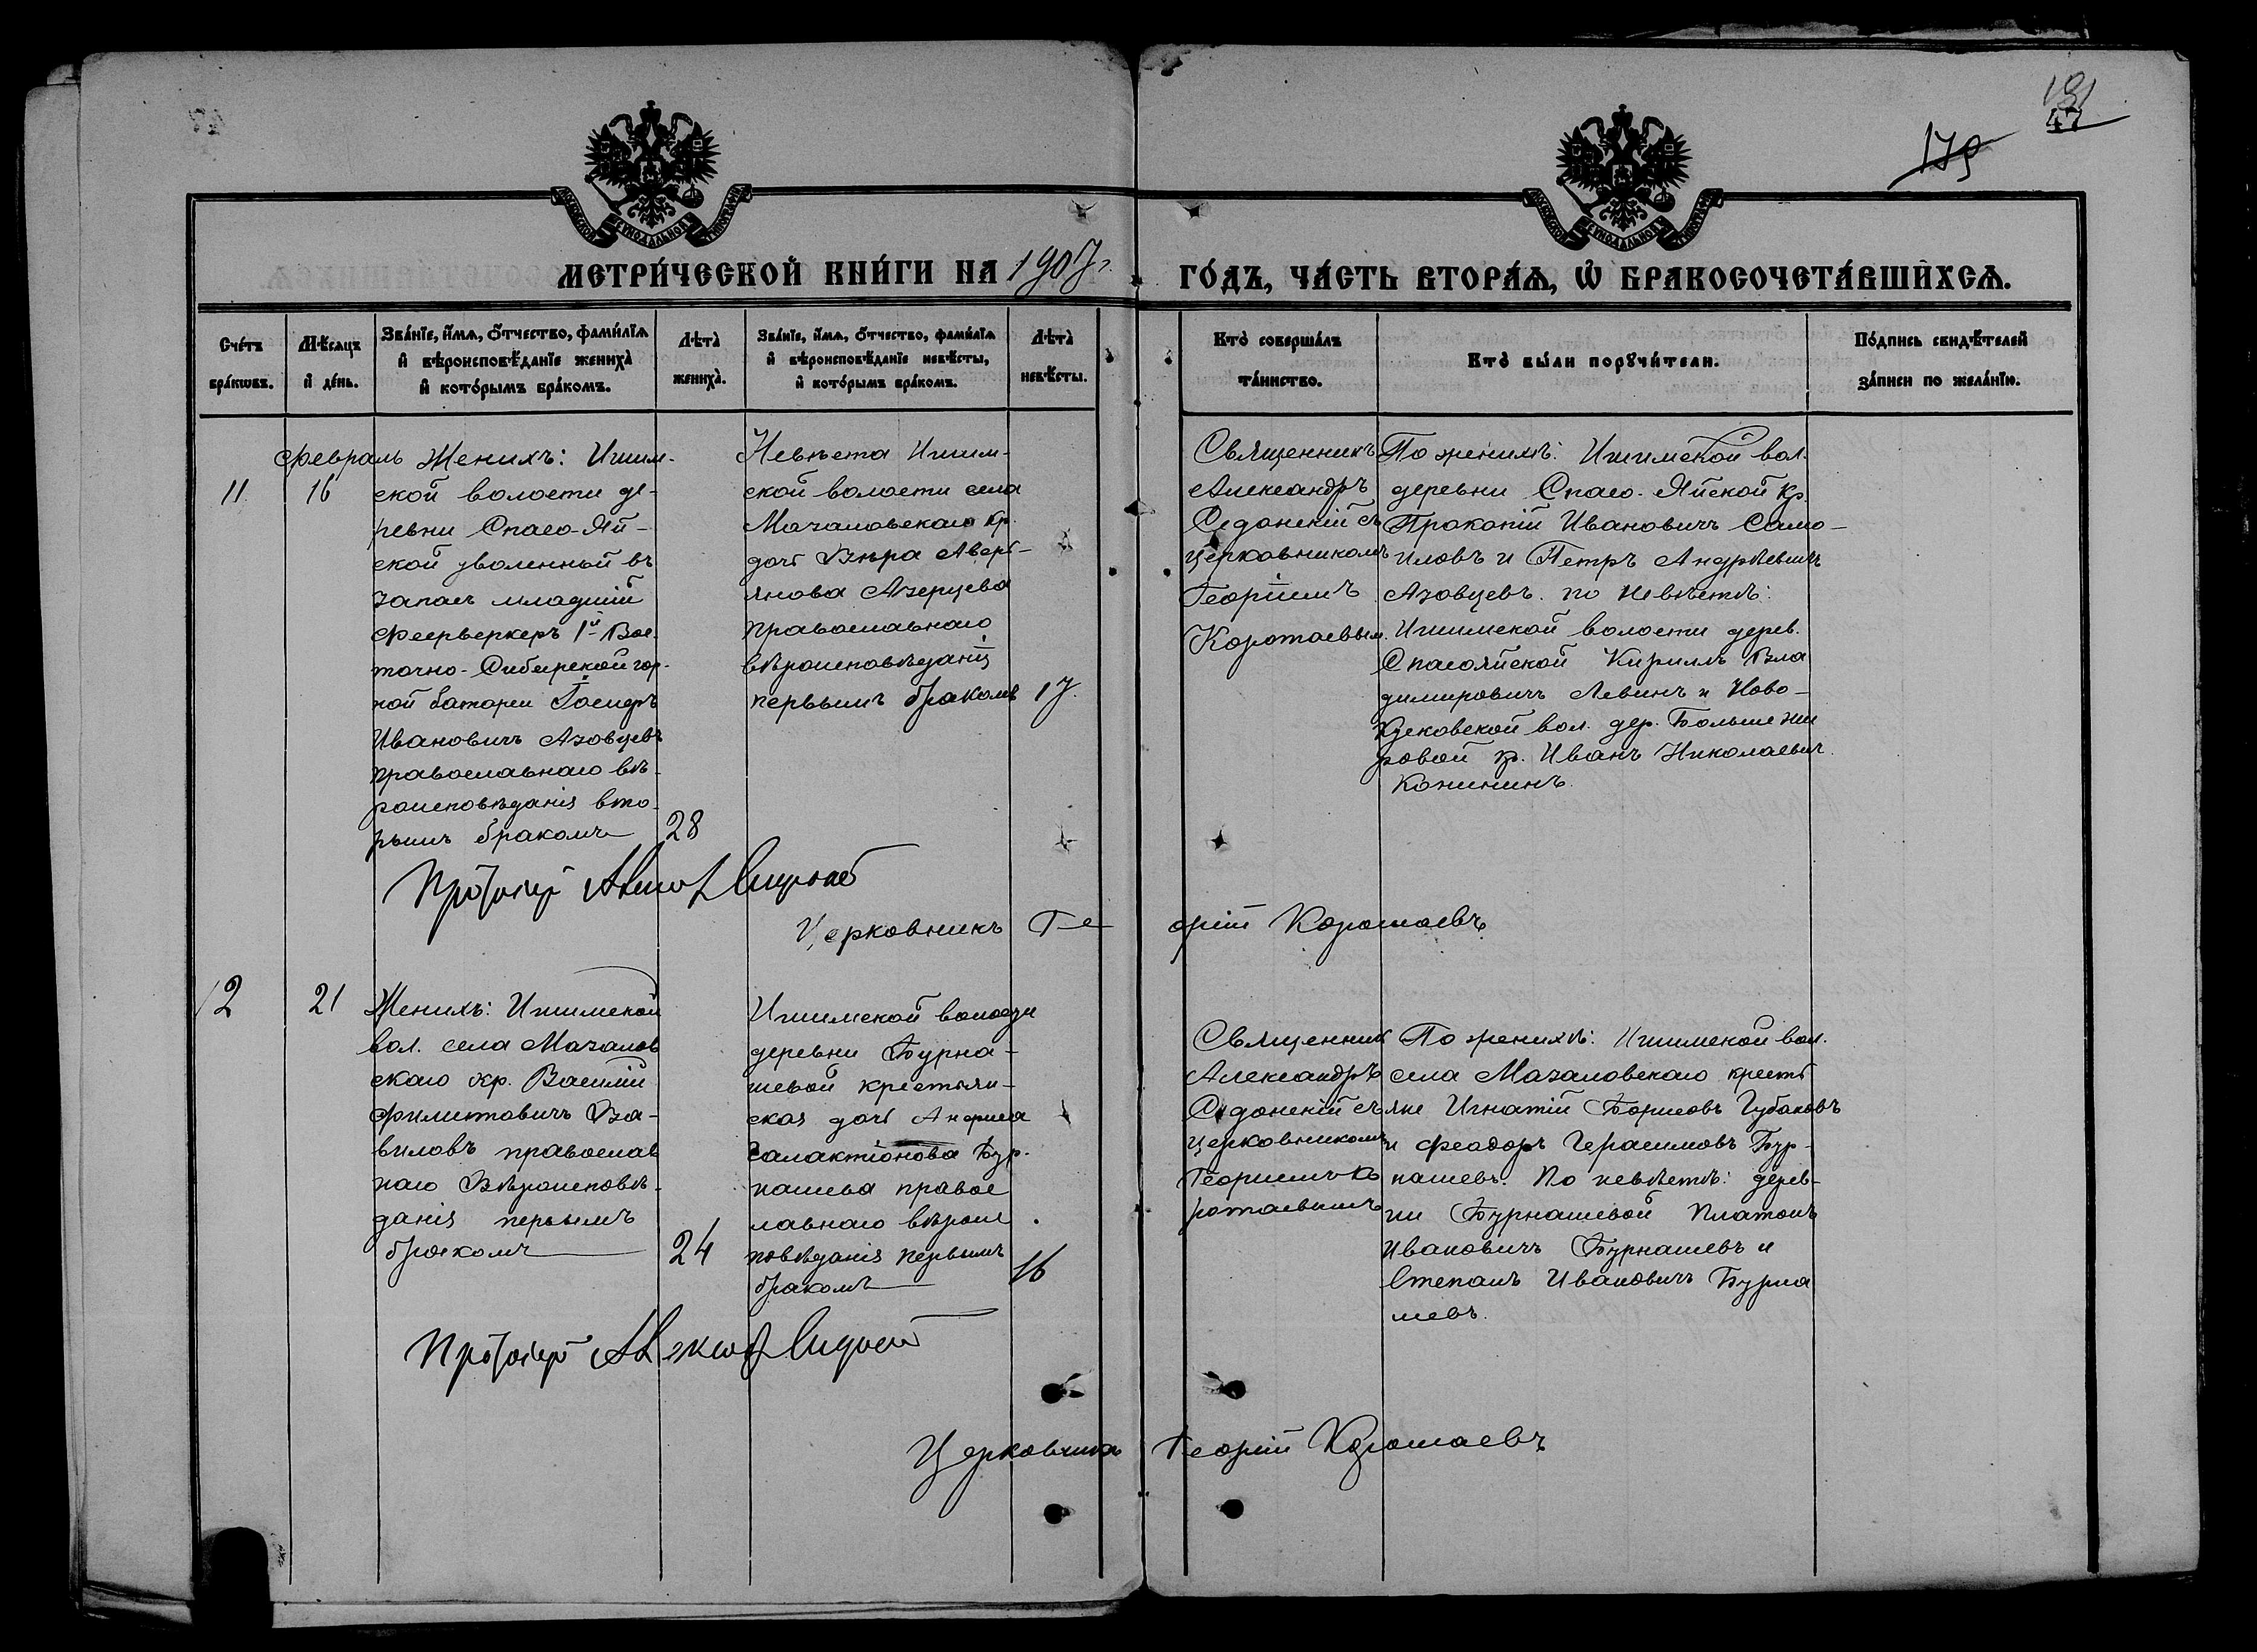 181
47
179
МЕТРИ́ЧЕСКОЙ КНИ́ГИ НА 1907 г.
ГО́ДЪ, ЧА́СТЬ ВТОРА́Ѧ, Ѽ БРАКОСОЧЕТА́ВШИХСѦ.
Сче́тъ бра́кωвъ.
Мѣ́сѧцъ и҆ де́нь.
Зва́нїе, и҆́мѧ, ѻ҆́тчество, фами́лїѧ и҆ вѣроисповѣ́данїе жениха̀ и҆ кото́рымъ бра́комъ.
Лѣта̀ жениха̀.
Зва́нїе, и҆́мѧ, ѻ҆́тчество, фами́лїѧ и҆ вѣроисповѣ́данїе невѣ́сты, и҆ кото́рымъ бра́комъ.
Лѣта̀ невѣ́сты.
Кто̀ соверша́лъ та́инство.
Кто̀ бы́ли порꙋчи́тели.
По́дпись свидѣ́телей за́писи по жела́нїю.
11
Февраль
16
Женихъ: Ишим-
ской волости де-
ревни Спасо-Яй-
ской уволенный въ
запасъ младшій
фейерверкеръ 1й Вос-
точно-Сибирской гор-
ной батареи
Ивановичъ Азовцевъ
православнаго вѣ-
роисповѣданія вто-
рымъ бракомъ
28
Невѣста Ишим-
ской волости села
Мачаловскаго кр.
дочь Вѣра Аверь-
янова Азерцева
православнаго
вѣроисповѣданія
первымъ бракомъ
17
Священникъ
Александръ
Сидонскій съ
церковникомъ
Георгіемъ
Коротаевым.
По женихѣ: Ишимской вол.
деревни Спасо-Яйской кр.
Прокопій Ивановичъ Само-
иловъ и Петръ Андрѣевичъ
Азовцевъ. по невѣстѣ:
Ишимской волости дерев.
Спасояйской Кириллъ Вла
димировичъ Левинъ и Ново-
Кусковской вол. дер. Больше жи
ровой кр. Иванъ Николаевич
Кожининъ.
Протоіер
Церковникъ Ге
оргій Коротаевъ
12
21
Женихъ: Ишимской
вол. села Мачалов
скаго кр. Василій
Филиповичъ Ва-
виловъ православ
наго Вѣроисповѣ-
данія первымъ
бракомъ
24
Ишимской волости
деревни Бурна-
шевой крестьян-
ская дочь Анфиса
Галактіонова Бур-
нашева правос
лавнаго вѣроис
повѣданія первымъ
бракомъ
16
Священник
Александръ
Сидонскій съ
церковникомъ
Георгіемъ Ко
ротаевымъ
По женихѣ: Ишимской вол.
села Мачаловскаго кресть
яне Игнатій Борисовъ Губановъ
и Феодоръ Герасимовъ Бур-
нашевъ. По невѣстѣ: дерев-
ни Бурнашевой Платонъ
Ивановичъ Бурнашевъ и
Степанъ Ивановичъ Бурна
шевъ.
Протоіер
Церковникъ
Георгій Коротаевъ